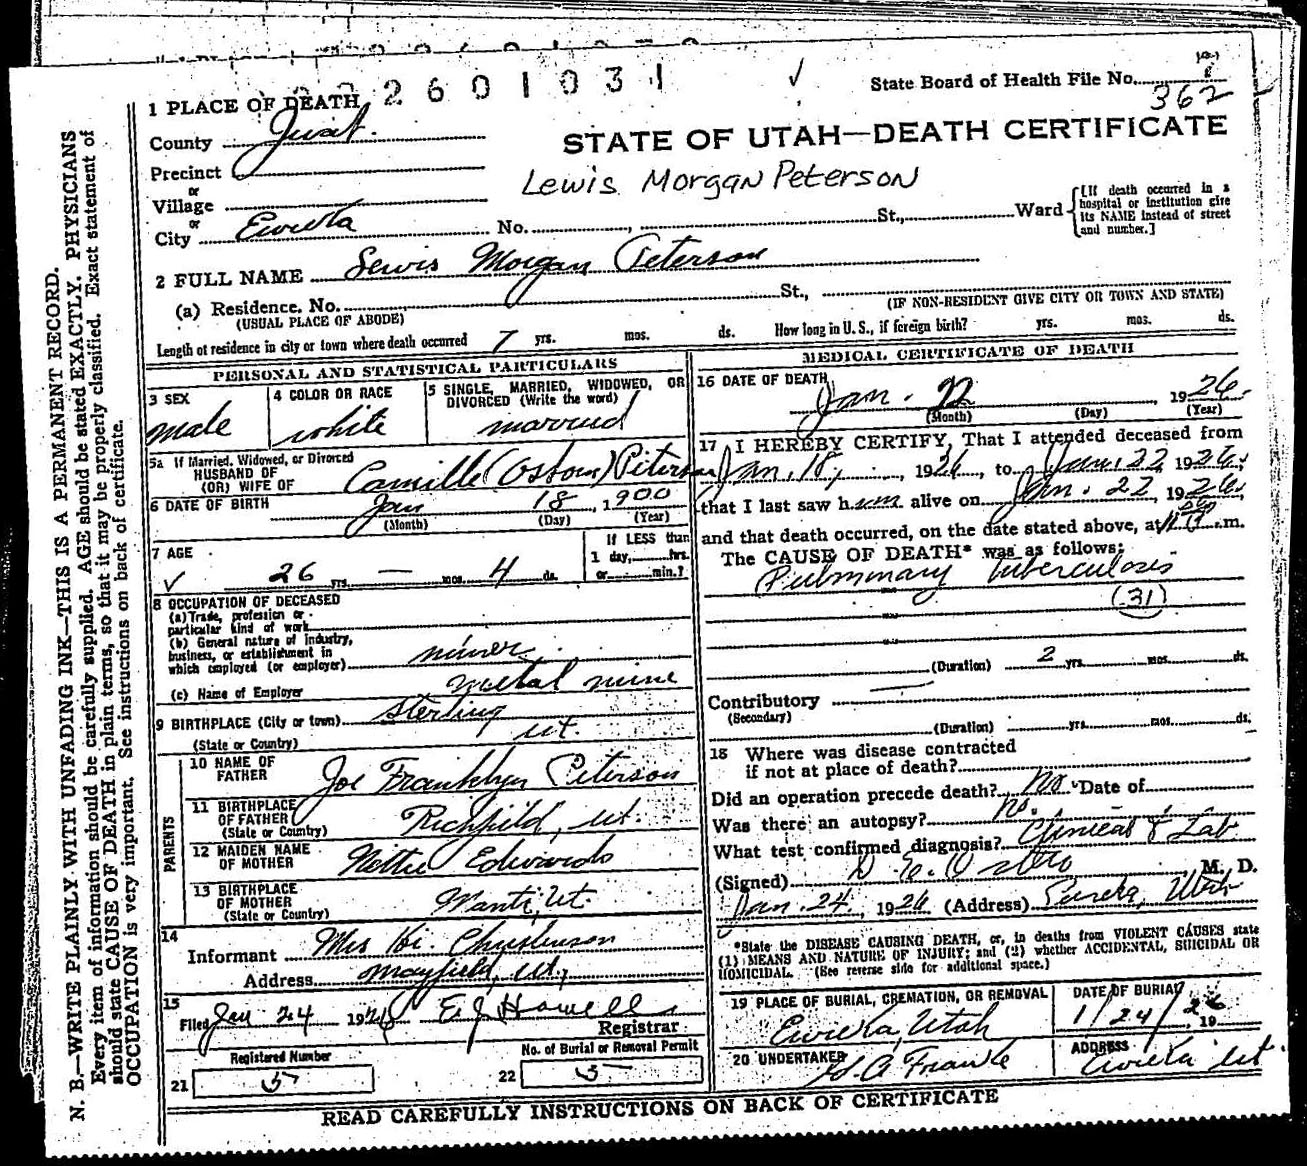 2601031
State Board of Health File No. 362
1 PLACE OF DEATH
County Juab.
STATE OF UTAH—DEATH CERTIFICATE
Precinct
Lewis Morgan Peterson
or
Village
or
City Eureka No. , St., Ward
[If death occurred in a
hospital or institution give
its NAME instead of street
and number.]
2 FULL NAME Lewis Morgan Peterson
(a) Residence. No. St.,
(USUAL PLACE OF ABODE)
(IF NON-RESIDENT GIVE CITY OR TOWN AND STATE)
Length of residence in city or town where death occurred 7 yrs. mos. ds. How long in U. S., if foreign birth? yrs. mos. ds.
PERSONAL AND STATISTICAL PARTICULARS
3 SEX
male
4 COLOR OR RACE
white
5 SINGLE, MARRIED, WIDOWED, OR
DIVORCED (Write the word)
married
5a If Married, Widowed, or Divorced
HUSBAND OF
(OR) WIFE OF Camille (Osborn) Peterson
6 DATE OF BIRTH Jan 18, 1900
(Month) (Day) (Year)
7 AGE
26 yrs. — mos. 4 ds.
If LESS than
1 day, hrs.
or min.?
8 OCCUPATION OF DECEASED
(a) Trade, profession or
particular kind of work
(b) General nature of industry,
business, or establishment in
which employed (or employer) miner
metal mine
(c) Name of Employer
9 BIRTHPLACE (City or town) Sterling
(State or Country) ut.
PARENTS
10 NAME OF
FATHER Joe Franklyn Peterson
11 BIRTHPLACE
OF FATHER
(State or Country) Richfield, ut.
12 MAIDEN NAME
OF MOTHER Nettie Edwards
13 BIRTHPLACE
OF MOTHER
(State or Country) Manti, Ut.
14
Informant Mrs Christenson
Address Mayfield, ut,
15
Filed Jan 24 1926 E J Howell
Registrar
Registered Number
21 5
No. of Burial or Removal Permit
22 5
MEDICAL CERTIFICATE OF DEATH
16 DATE OF DEATH
Jan. 22, 1926.
(Month) (Day) (Year)
17 I HEREBY CERTIFY, That I attended deceased from
Jan. 18, 1926, to Jan. 22 1926,
that I last saw him alive on Jan. 22 1926,
and that death occurred, on the date stated above, at m.
The CAUSE OF DEATH* was as follows:
Pulmonary tuberculosis
(31)
(Duration) 2 yrs. mos. ds.
Contributory —
(Secondary)
(Duration) yrs. mos. ds.
18 Where was disease contracted
if not at place of death?
Did an operation precede death? No Date of
Was there an autopsy? no.
What test confirmed diagnosis? Clinical & Lab
(Signed) M. D.
Jan. 24, 1926 (Address) Eureka, Utah
*State the DISEASE CAUSING DEATH, or, in deaths from VIOLENT CAUSES state
(1) MEANS AND NATURE OF INJURY; and (2) whether ACCIDENTAL, SUICIDAL OR
HOMICIDAL. (See reverse side for additional space.)
19 PLACE OF BURIAL, CREMATION, OR REMOVAL
Eureka, Utah
DATE OF BURIAL
1/24/, 1926
20 UNDERTAKER
A Franke
ADDRESS
Eureka Ut.
READ CAREFULLY INSTRUCTIONS ON BACK OF CERTIFICATE
N. B.—WRITE PLAINLY WITH UNFADING INK—THIS IS A PERMANENT RECORD.
Every item of information should be carefully supplied. AGE should be stated EXACTLY. PHYSICIANS
should state CAUSE OF DEATH in plain terms, so that it may be properly classified. Exact statement of
OCCUPATION is very important. See instructions on back of certificate.